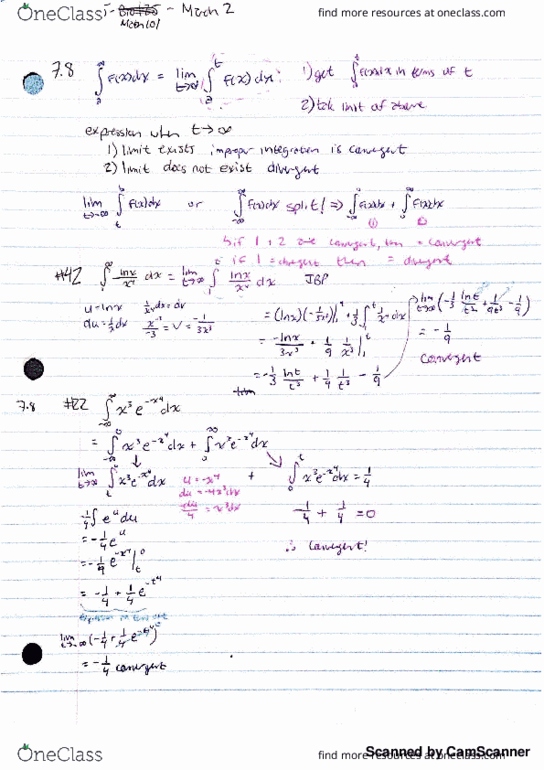 OneClass
- March 2
find more resources at oneclass.com
Math 101
7.8 ∫_a^∞ f(x)dx = lim t→∞ ∫_a^t f(x)dx 1) get ∫ f(x)dx in terms of t
2) take limit of above
expression when t→∞
1) limit exists improper integration is convergent
2) limit does not exist divergent
lim ∫_t^b f(x)dx or ∫_-∞^∞ f(x)dx split! ⇒ ∫ f(x)dx + ∫ f(x)dx
if 1 + 2 are convergent, then = convergent
if 1 = divergent then = divergent
#42 ∫_1^∞ lnx/x⁴ dx = lim t→∞ ∫_1^t lnx/x⁴ dx IBP
u = lnx 1/x⁴ dx = dv
du = 1/x dx x^-3/-3 = v = -1/3x³
= (lnx)(-1/3x³)|_1^t + 1/3 ∫_1^t 1/x⁴ dx
= -lnx/3x³ + 1/9 1/x³ |_1^t
lim t→∞ (-1/3 lnt/t³ + 1/9t³ - 1/9)
= -1/9
convergent
7.8 #22 ∫_-∞^∞ x³e^-x⁴ dx
= ∫_-∞^0 x³e^-x⁴ dx + ∫_0^∞ x³e^-x⁴ dx
∫_t^0 x³e^-x⁴ dx
u = -x⁴
du = -4x³dx
+ ∫_0^t x³e^-x⁴ dx = 1/4
-1/4 + 1/4 = 0
∴ convergent!
-1/4 ∫ e^u du
= -1/4 e^u
= -1/4 + 1/4 e^-t⁴
= -1/4 convergent
OneClass
find more resources at oneclass.com
Scanned by CamScanner